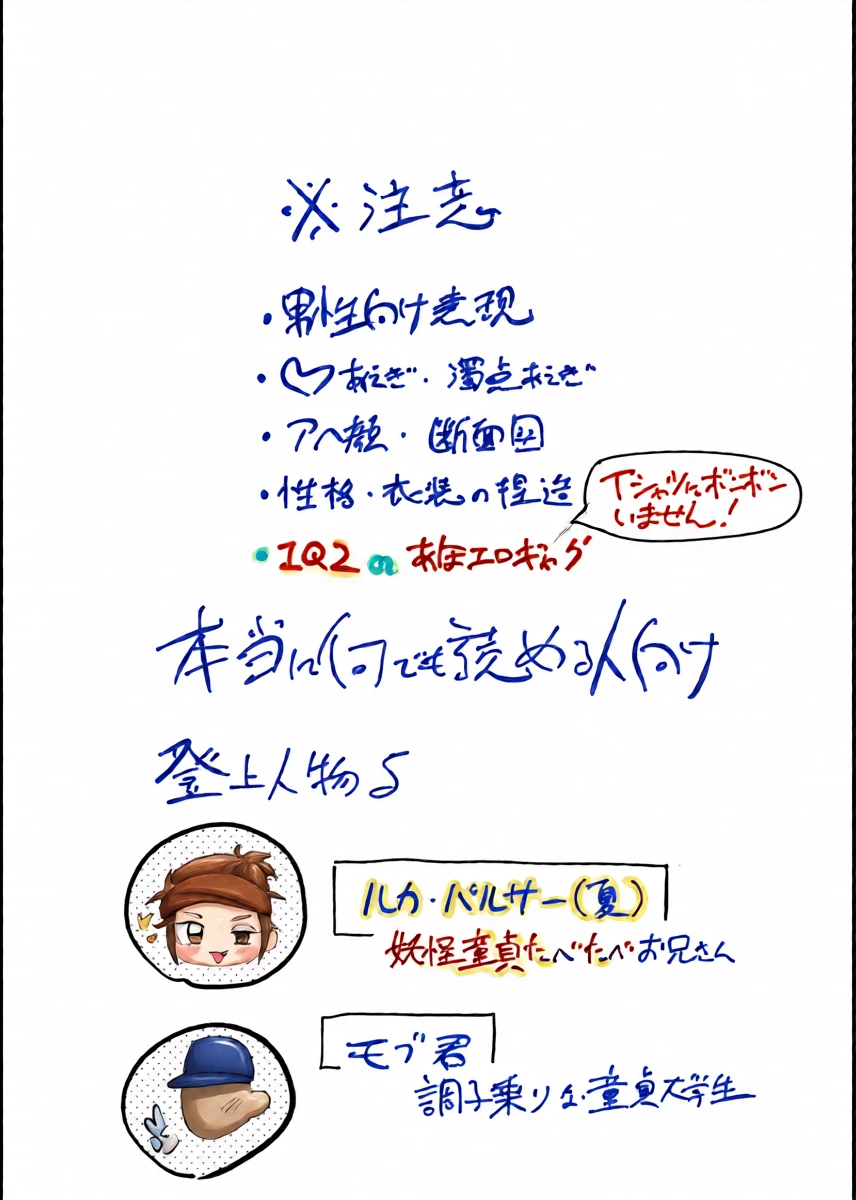 ※注意
・男性向け表現
・♡あえぎ・濁点あえぎ
・アヘ顔・断面図
・性格・衣装の捏造
Tシャツにボンボン
いません!
・IQ2のあほエロギャグ
本当に何でも読める人向け
登上人物
ルカ・バルサー(夏)
妖怪童貞たべたべお兄さん
モブ君
調子乗りな童貞大学生